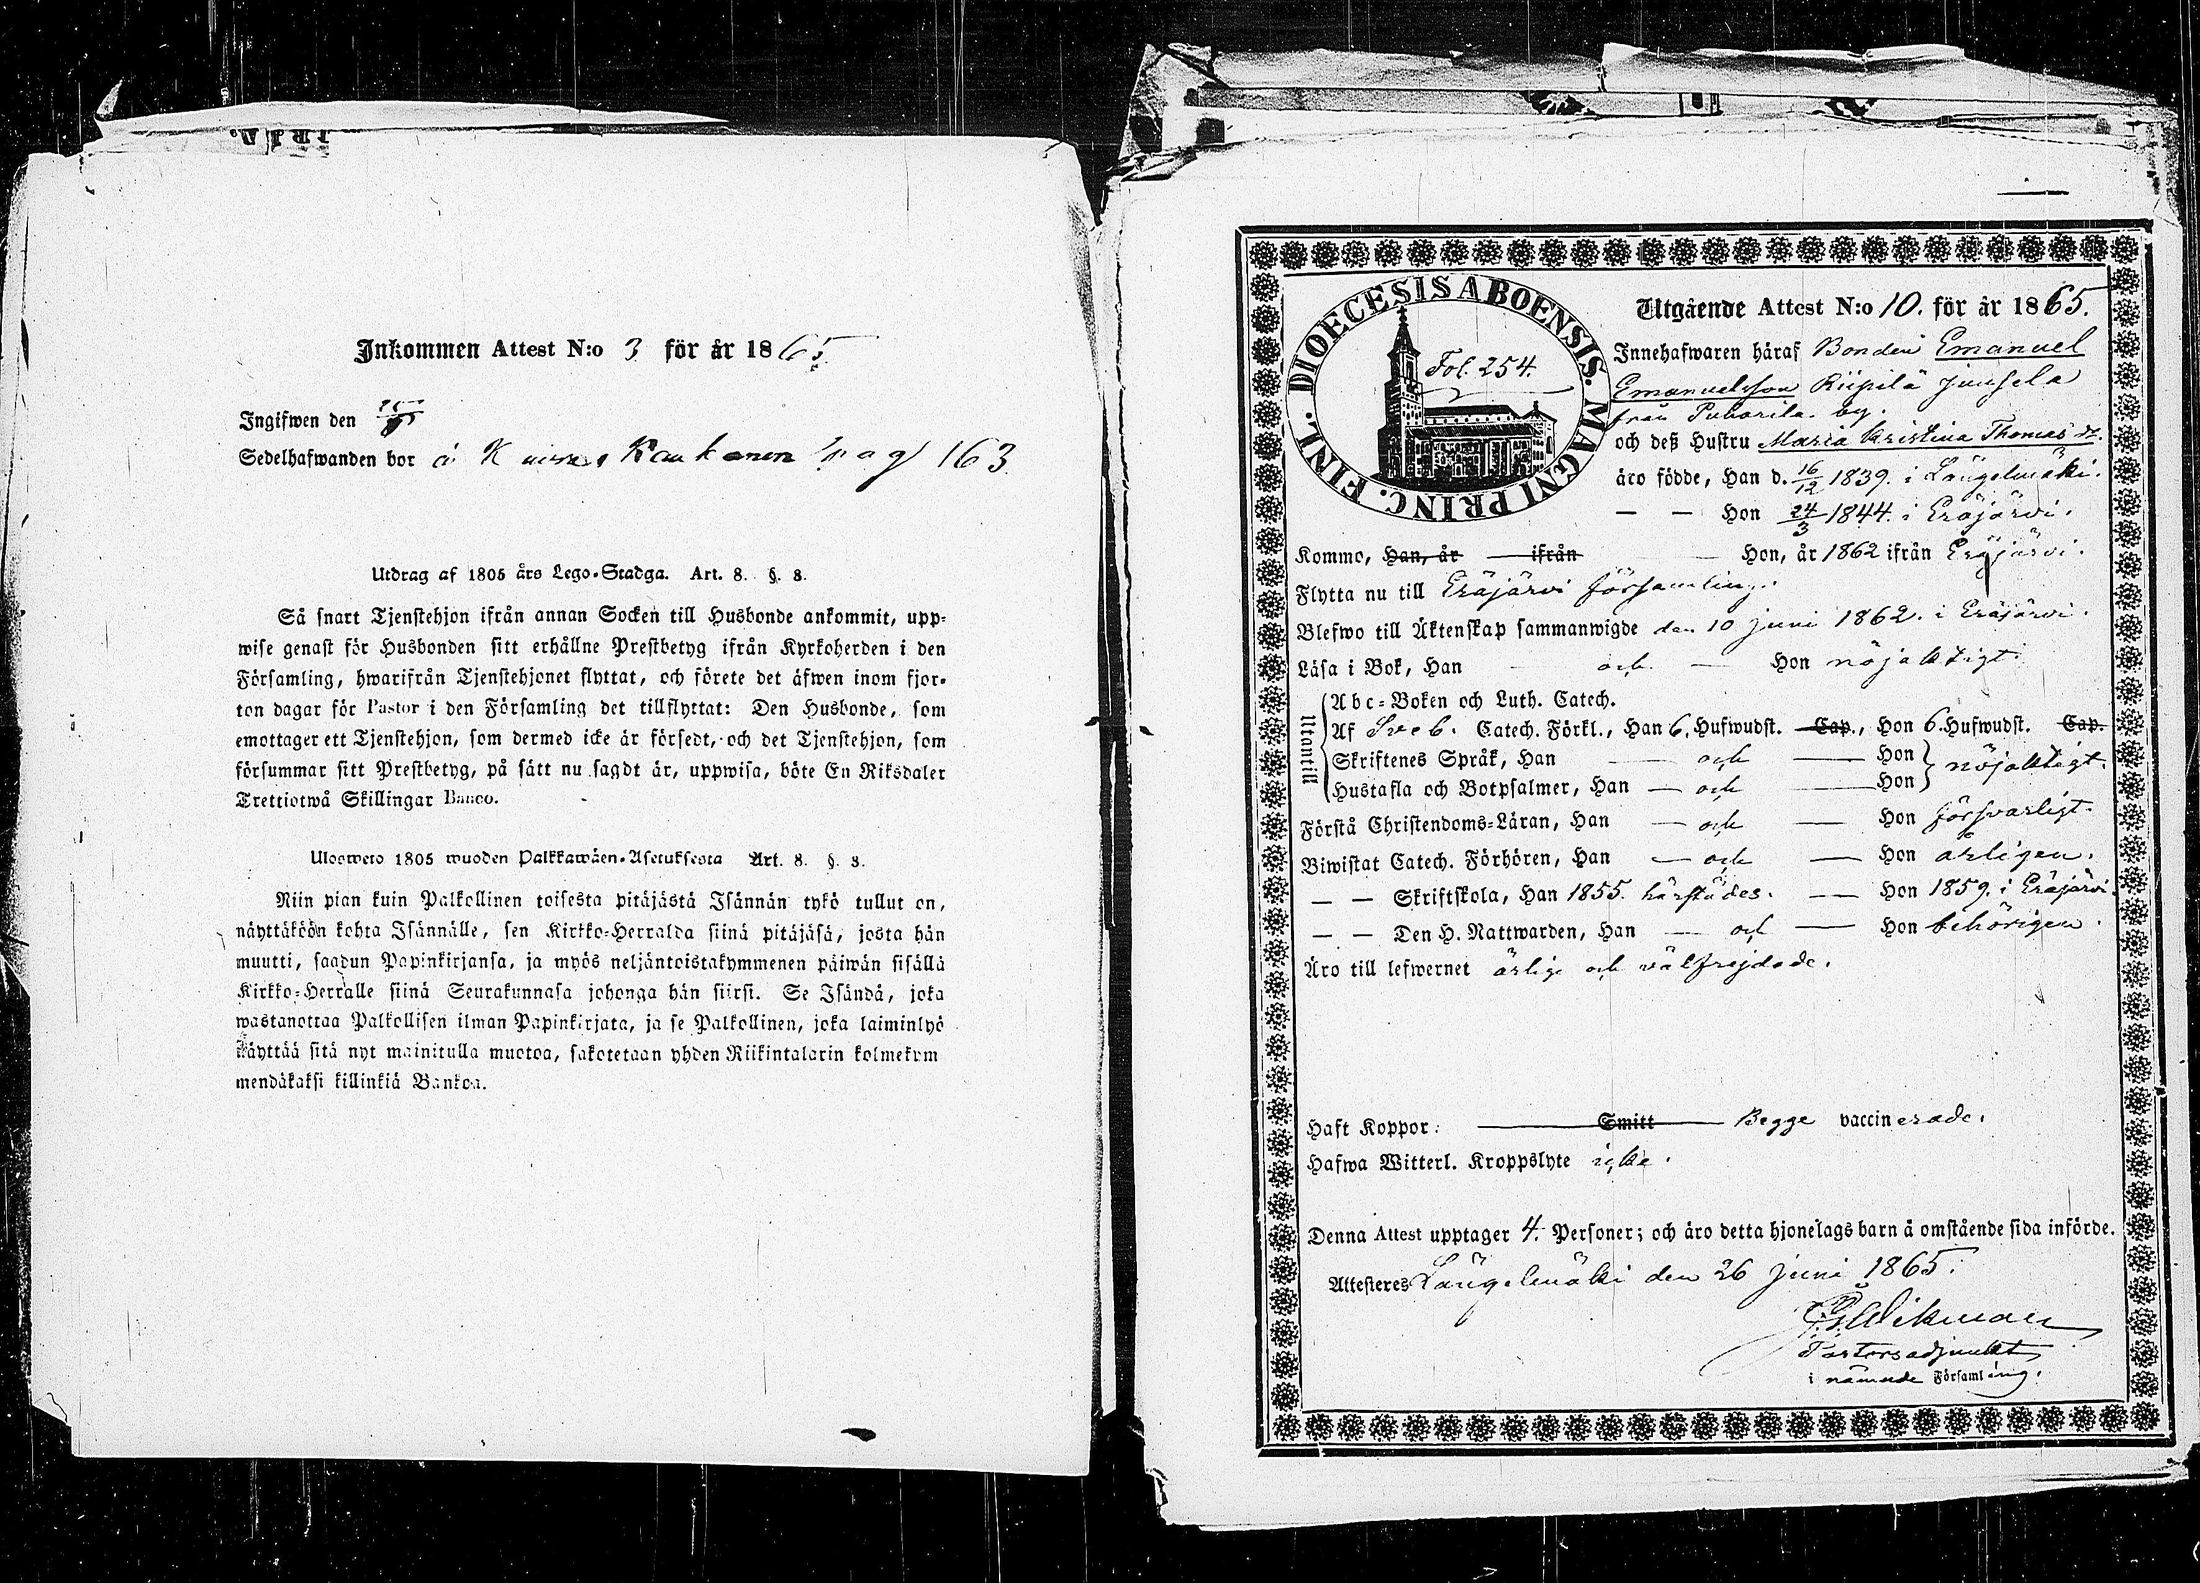 Inkommen Attest N:o 3 för år 1865.
Ingifwen den
Sedelhafwanden bor å pag 163
Utdrag af 1805 års Lego-Stadga. Art. 8. §. 8.
Så snart Tjenstehjon ifrån annan Socken till Husbonde ankommit, upp-
wise genast för Husbonden sitt erhållne Prestbetyg ifrån Kyrkoherden i den
Församling, hwarifrån Tjenstehjonet flyttat, och förete det äfwen inom fjor-
ton dagar för Pastor i den Församling det tillflyttat: Den Husbonde, som
emottager ett Tjenstehjon, som dermed icke är försedt, och det Tjenstehjon, som
försummar sitt Prestbetyg, på sätt nu sagdt är, uppwisa, böte En Riksdaler
Trettiotwå Skillingar Banco.
Ulosweto 1805 wuoden Palkkawäen-Asetuksesta Art. 8. §. 8.
Niin pian kuin Palkollinen toisesta pitäjästä Isännän tykö tullut on,
näyttäköön kohta Isännälle, sen Kirkko-Herralda siinä pitäjäsä, josta hän
muutti, saadun Papinkirjansa, ja myös neljäntoistakymmenen päiwän sisällä
Kirkko-Herralle siinä Seurakunnasa johonga hän siirsi. Se Isändä, joka
wastanottaa Palkollisen ilman Papinkirjata, ja se Palkollinen, joka laiminlyö
näyttää sitä nyt mainitulla muotoa, sakotetaan yhden Riikintalarin kolmekym
mendäkaksi killinkiä Bankoa.
DIOECESIS ABOENSIS. MAGNI PRINC. FINL.
Fol. 254.
Utgående Attest N:o 10. för år 1865.
Innehafwaren häraf Bonden Emanuel
Emanuelsson Riipilä Juusela
från Puharila by.
och deß Hustru Maria Kristina Thomas dr.
äro födde, Han d. 16/12 1839. i Längelmäki.
— — Hon 24/3 1844. i Eräjärvi.
Kommo, Han, år — ifrån — Hon, år 1862 ifrån Eräjärvi.
Flytta nu till Eräjärvi församling.
Blefwo till Äktenskap sammanwigde den 10 juni 1862. i Eräjärvi.
Läsa i Bok, Han — och — Hon nöjaktigt.
Utantill
Abc-Boken och Luth. Catech.
Af Sveb. Catech. Förkl., Han 6. Hufwudst. Cap., Hon 6. Hufwudst. Cap.
Skriftenes Språk, Han — och — Hon
nöjaktigt.
Hustafla och Botpsalmer, Han — och — Hon
Förstå Christendoms-Läran, Han — och — Hon försvarligt.
Biwistat Catech. Förhören, Han — och — Hon årligen.
— — Skriftskola, Han 1855. härstädes. — Hon 1859. i Eräjärvi.
— — Den H. Nattwarden, Han — och — Hon behörigen.
Äro till lefwernet ärlige och välfrejdade.
Haft Koppor: — Smitt — Begge vaccinerade.
Hafwa Witterl. Kroppslyte icke.
Denna Attest upptager 4. Personer; och äro detta hjonelags barn å omstående sida införde.
Attesteres Längelmäki den 26 juni 1865.
Wikman
Pastorsadjunkt
i nämnde Församling.